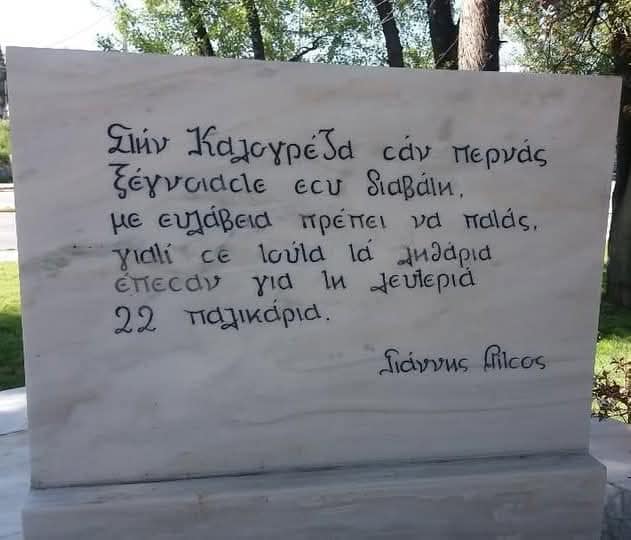 Στήν Καλογρέζα σάν περνάς
ξέγνοιαστε εσυ διαβάτη,
με ευλάβεια πρέπει να πατάς,
γιατί σε τούτα τά λιθάρια
έπεσαν για τη λευτεριά
22 παλικάρια.
Γιάννης Ρίτσος